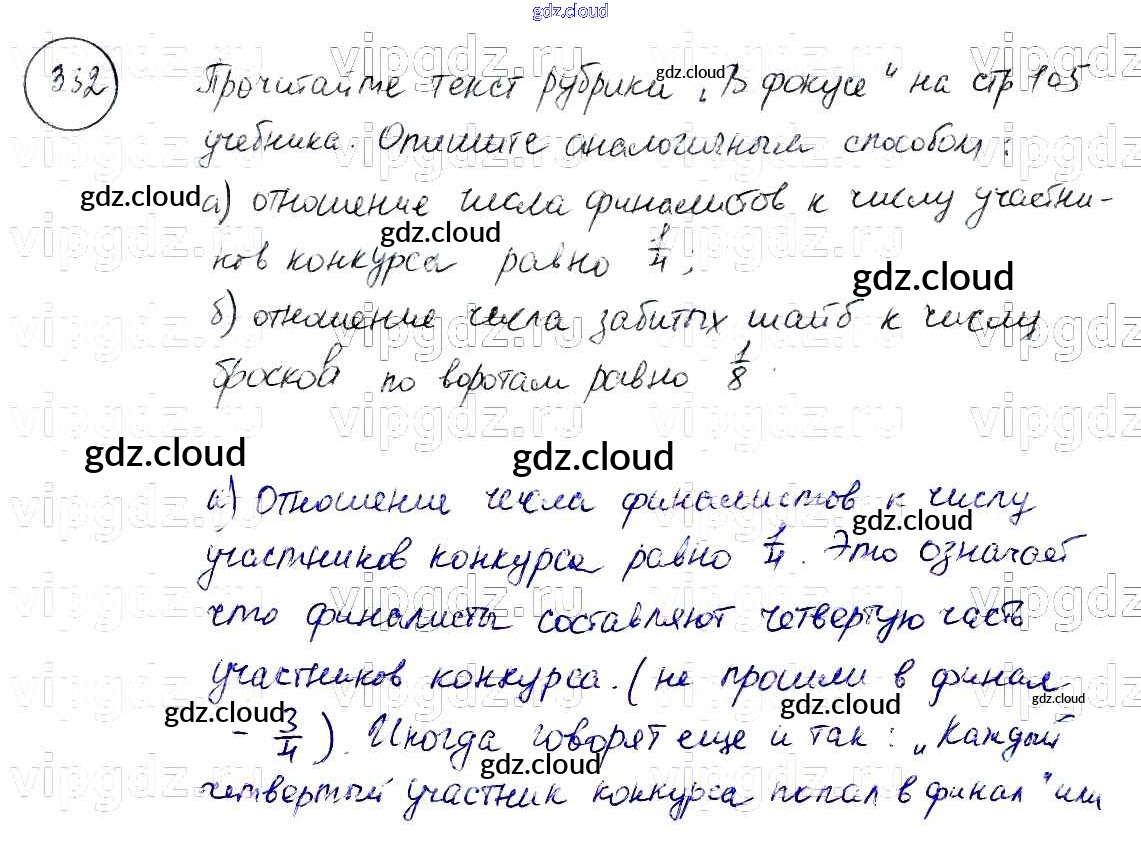 gdz.cloud
332
Прочитайте текст рубрики „В фокусе“ на стр 105
учебника. Опишите аналогичным способом:
а) отношение числа финалистов к числу участни-
ков конкурса равно 1/4;
б) отношение числа забитых шайб к числу
бросков по воротам равно 1/8.
а) Отношение числа финалистов к числу
участников конкурса равно 1/4. Это означает
что финалисты составляют четвертую часть
участников конкурса. (не прошли в финал
- 3/4). Иногда говорят еще и так: „Каждый
четвертый участник конкурса попал в финал" или
gdz.cloud
gdz.cloud
gdz.cloud
gdz.cloud
gdz.cloud
gdz.cloud
gdz.cloud
gdz.cloud
gdz.cloud
gdz.cloud
gdz.cloud
vipgdz.ru